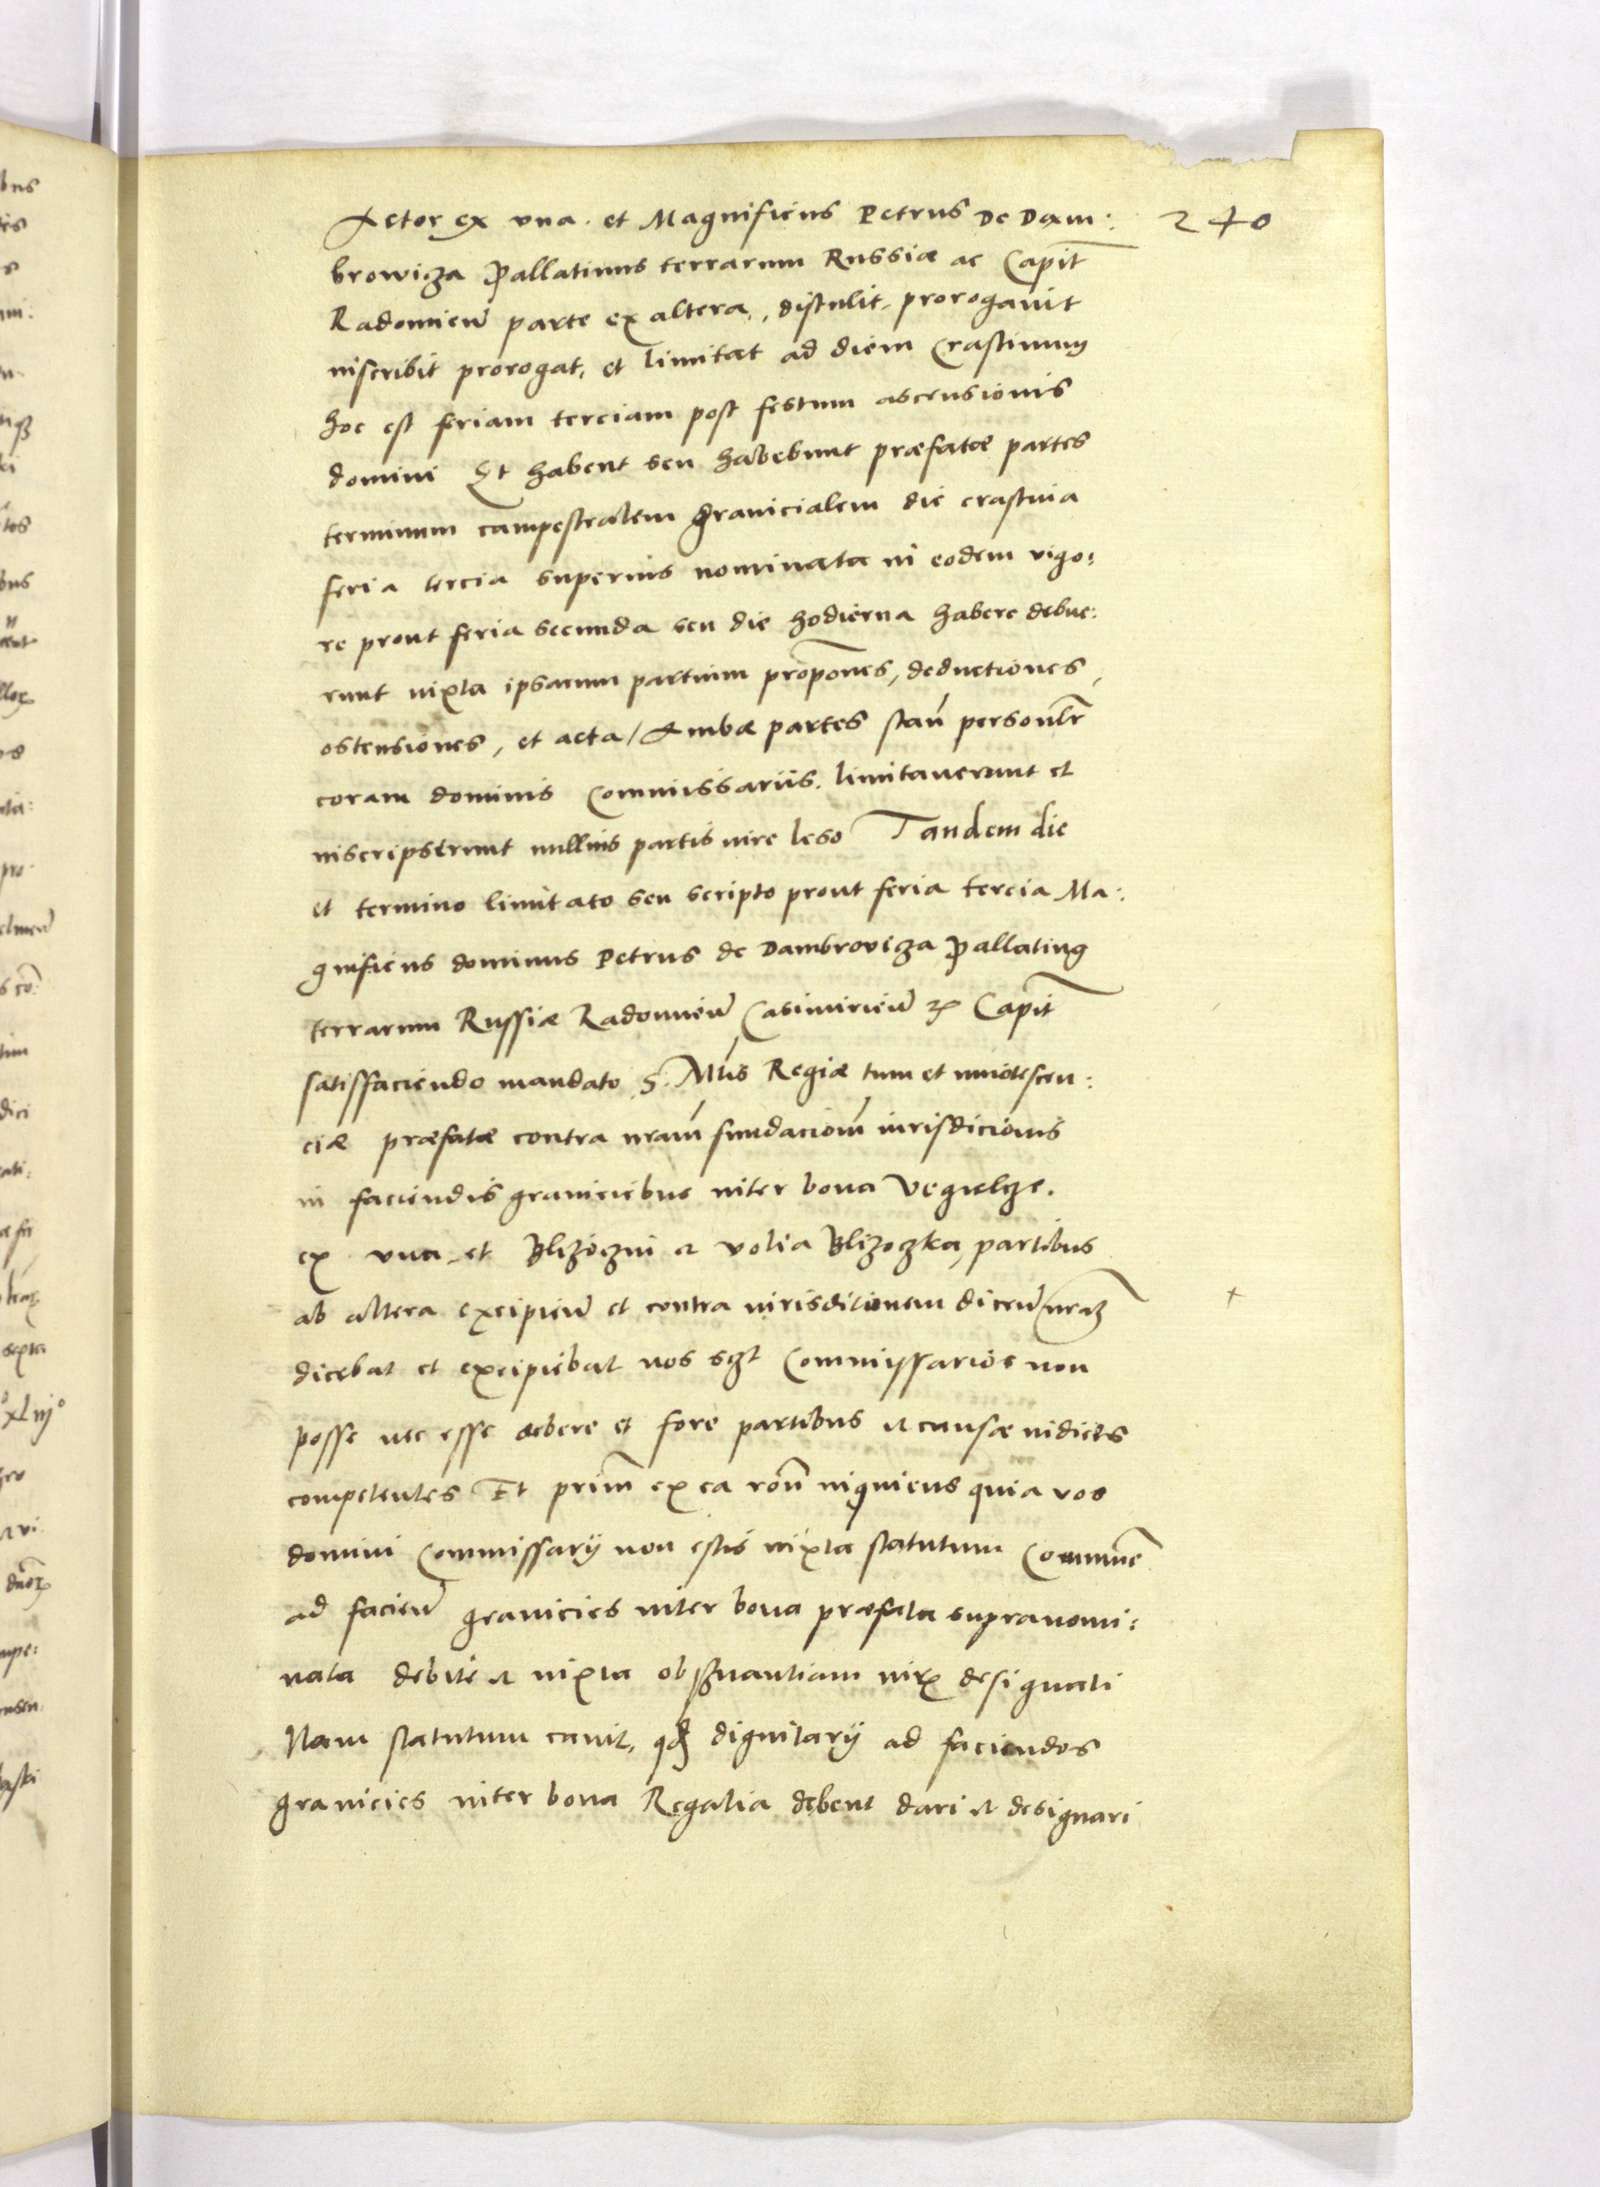 Actor ex vna. et Magnificus Petrus De Dam: 240
browicza Pallatinus terrarum Russiæ ac Capit
Radomień parte ex altera, distulit, prorogavit
inscribit prorogat, et limitat ad diem crastinum
hoc est feriam terciam post festum ascensionis
domini Et habent seu habebunt præfatæ partes
terminum campestralem granicialem die crastina
feria tercia superius nominata in eodem vigo:
re prout feria secunda seu die hodierna habere debue:
runt iuxta ipsarum partium propones, deductiones,
ostensiones, et acta / Ambæ partes stań personlr
coram dominis Commissariis. limitaverunt et
inscripserunt nullius partis iure leso Tandem die
et termino limitato seu scripto prout feria tercia Ma:
gnificus dominus Petrus de Dambrovicza Pallatinus
terrarum Russiæ Radomień Casimirień et Capit
satisfaciendo mandato S. Mtis Regiæ tum et innotescen:
ciæ præfatæ contra nram fundaciom iurisdicionis
in faciendis graniciebus inter bona Vgielcze.
ex vna, et Blizoczin et volia Blizoczka, partibus
ab altera excipień et contra iurisditionem diceń nram
dicebat et excipiebat nos sczt Commissarios non
posse nec esse debere et fore partibus et causæ iudices
competentes Et prim ex ea ron inquiens quia vos
domini Commissarij non estis iuxta statutum commune
ad facień granicies inter bona præfata supranomi:
nata debite et iuxta observantiam iurx designati
Nam statutum cauit, qd dignitarij ad faciendos
granicies inter bona Regalia debent dari et designari